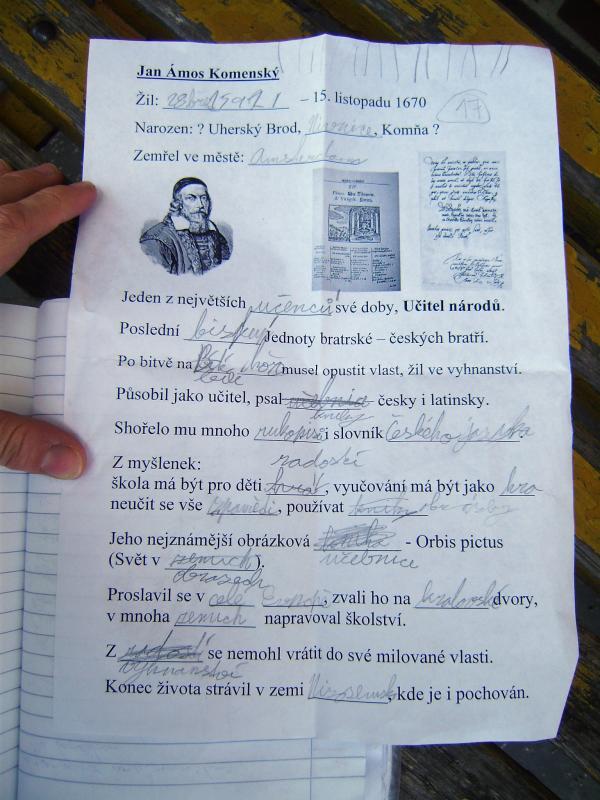 Jan Ámos Komenský
Žil: – 15. listopadu 1670 17
Narozen: ? Uherský Brod, Nivnice, Komňa ?
Zemřel ve městě: Amsterdam
Jeden z největších učenců své doby, Učitel národů.
Poslední biskup Jednoty bratrské – českých bratří.
Po bitvě na Bílé hoře musel opustit vlast, žil ve vyhnanství.
bílé
Působil jako učitel, psal učebnice česky i latinsky.
knihy
Shořelo mu mnoho rukopisů i slovník českého jazyka
Z myšlenek: radostí
škola má být pro děti hrou, vyučování má být jako hra
neučit se vše zpaměti, používat knihy
Jeho nejznámější obrázková kniha - Orbis pictus
učebnice
(Svět v zemích).
obrazech
Proslavil se v celé Evropě, zvali ho na královské dvory,
v mnoha zemích napravoval školství.
Z radostí se nemohl vrátit do své milované vlasti.
vyhnanství
Konec života strávil v zemi Nizozemsko, kde je i pochován.